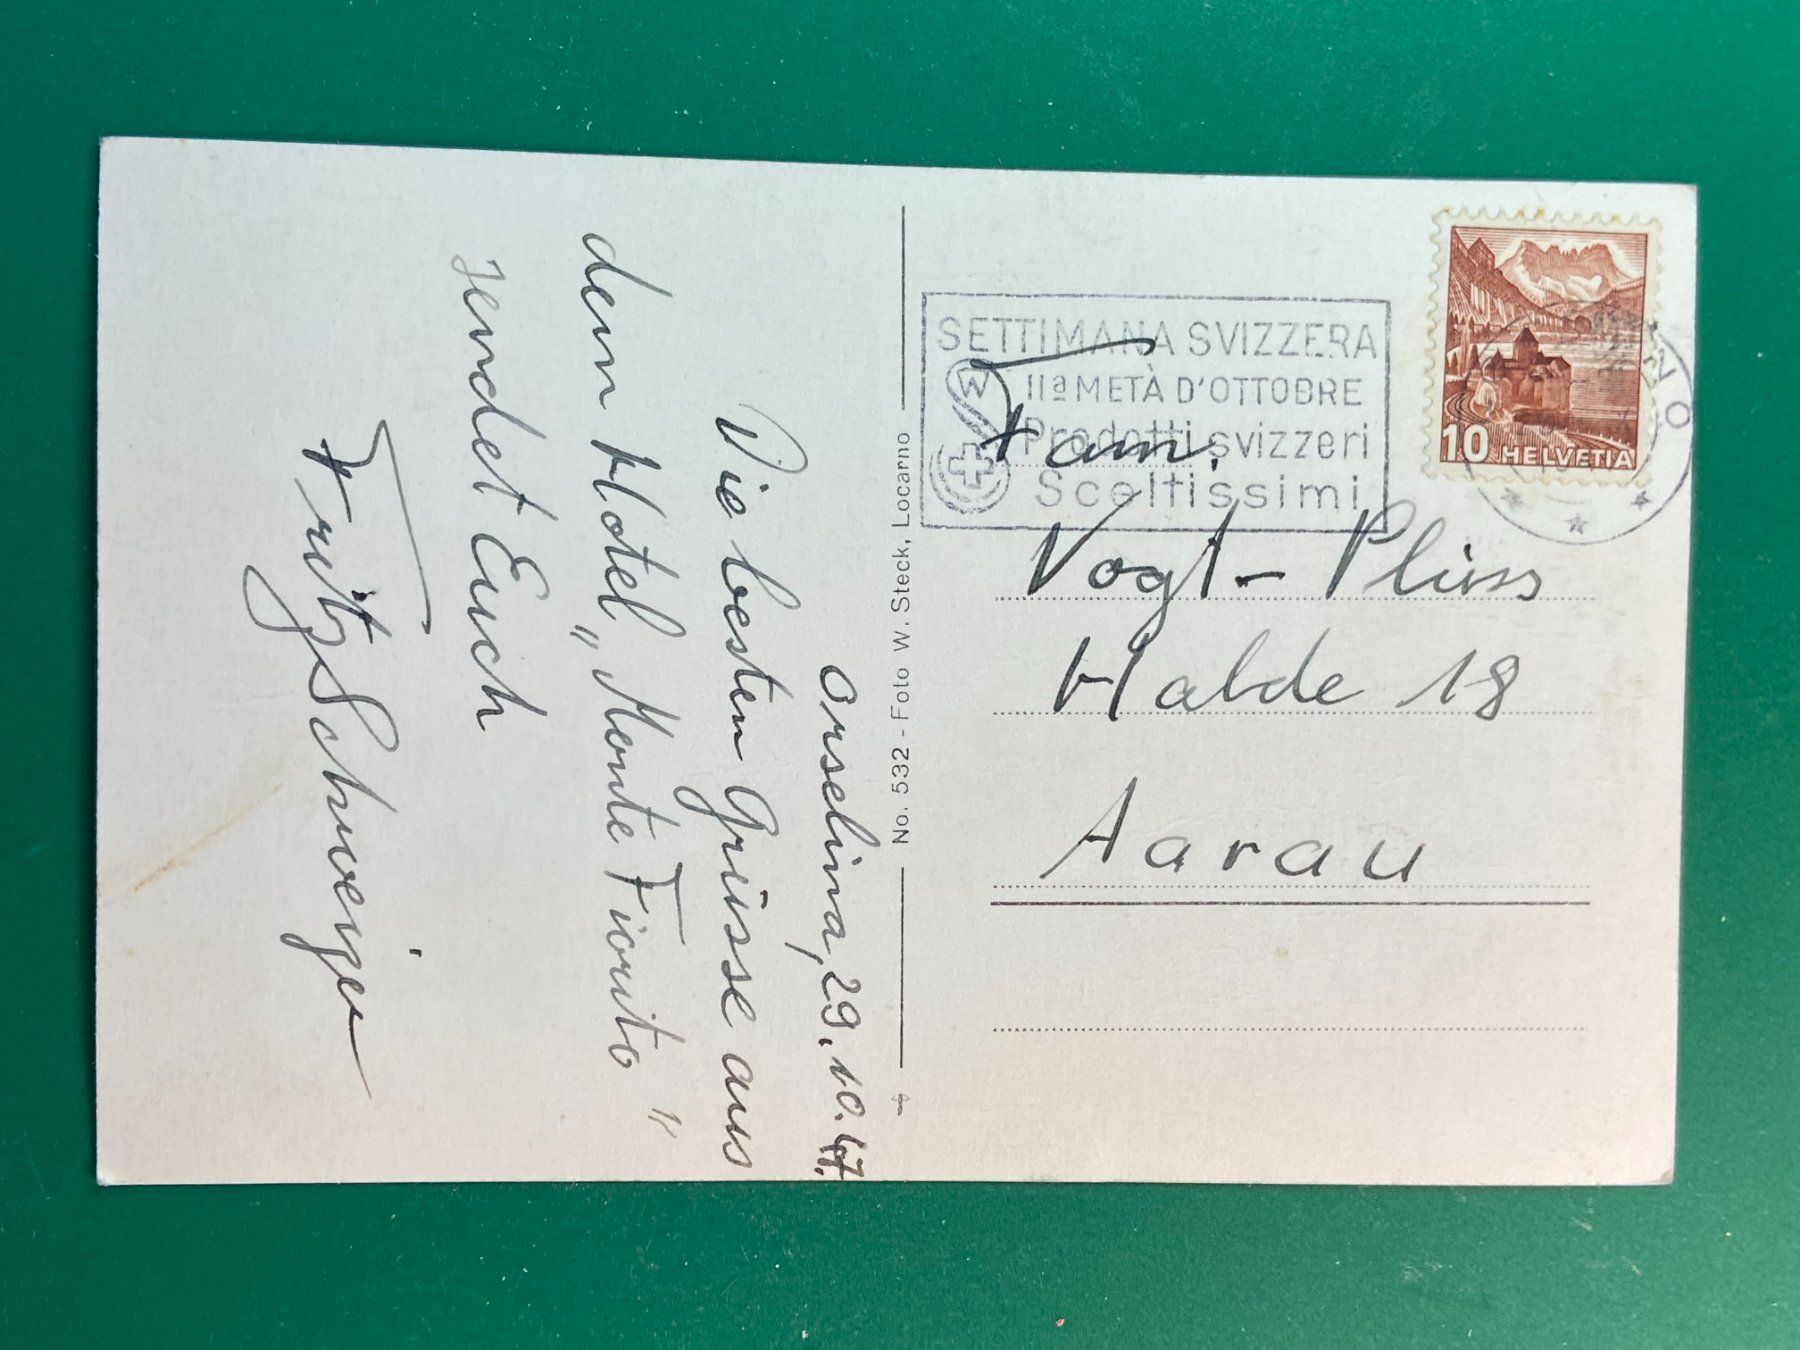 Orselina, 29.10.47.
Die besten Grüsse aus
dem Hotel „Monte Fiorito"
sendet Euch
Fritz Schweizer
No. 532 - Foto W. Steck, Locarno
SETTIMANA SVIZZERA
IIª METÀ D'OTTOBRE
Prodotti svizzeri
Sceltissimi
10 HELVETIA
Fam.
Vogt-Plüss
Halde 18
Aarau